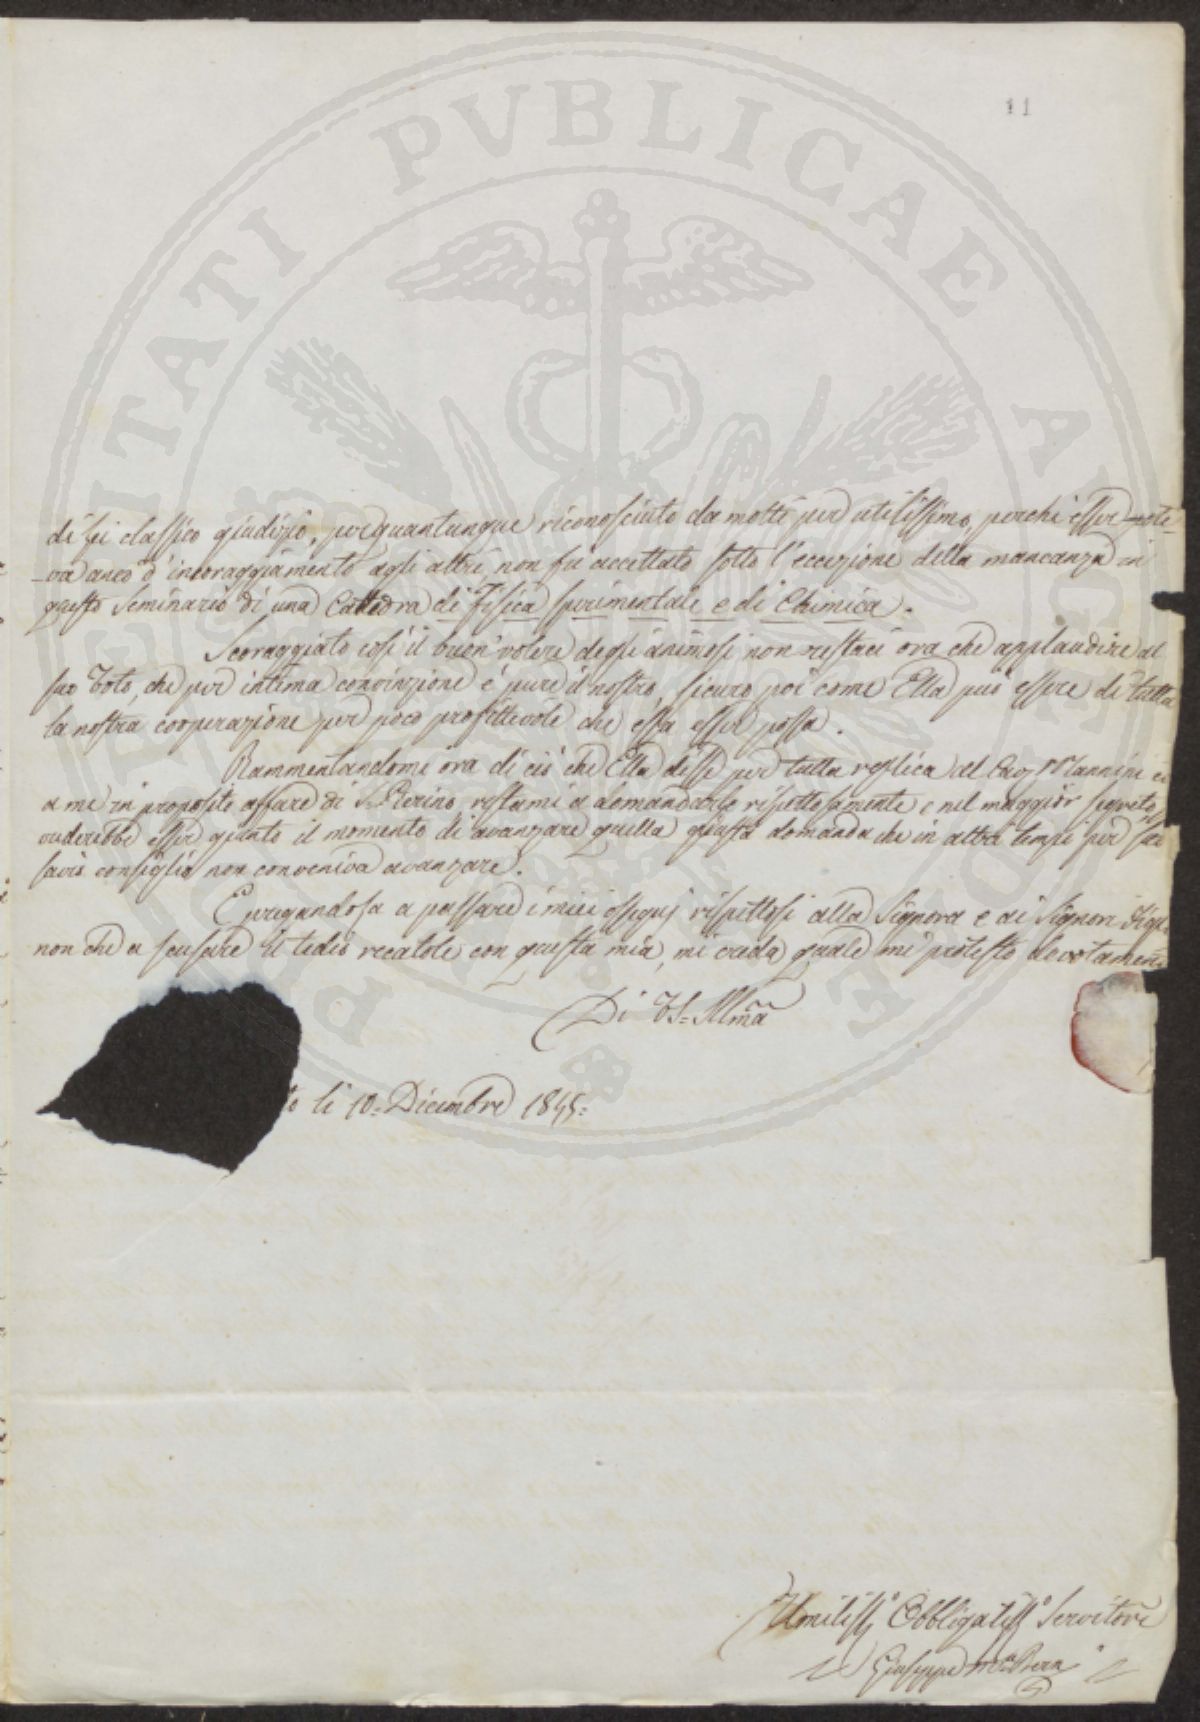 11
PROSPERITATI PVBLICAE AVGENDAE
di sei classico giudizio, per quantunque riconosciuto da molti per utilissimo, perchè esser pote-
va anco d'incoraggiamento agli altri, non fu accettato sotto l'eccezione della mancanza in
questo Seminario di una Cattedra di Fisica sperimentale e di Chimica.
Scoraggiato così il buon'volere degli animosi non restaci ora che applaudire al
suo Voto, che per intima convinzione è pure il nostro, sicuro poi come Ella può essere di tutta
la nostra cooperazione per poco profittevole che essa esser possa.
Rammentandomi ora di ciò che Ella disse per tutta replica al Cav. Mannini e
a me in proposito affare di S. Pierino, restami a demandarle rispettosamente e nel maggior segreto, se
vederebbe esser giunto il momento di avanzare quella giusta domanda che in altri tempi per suo
savio consiglio non conveniva avanzare.
E pregandola a passare i miei ossequj rispettosi alla Signora e ai Signori Figli
non che a scusare il tedio recatole con questa mia, mi creda quale mi protesto devotamente
Di VS. Illma
to li 10. Dicembre 1845.
Umiliss. Obbligatiss. Servitore
Giuseppe Ma